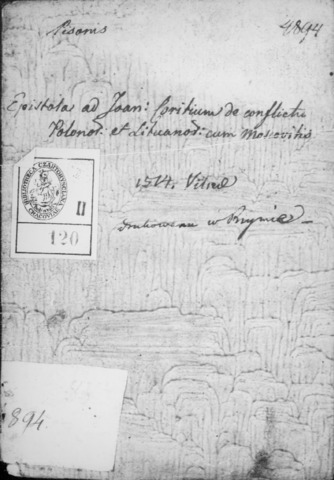 Pisonis
4894
Epistola ad Joan: Coritium de conflictu
Polonor: et Lituanor: cum Moscovitis
1514. Vilnae
Drukowana w Rzymie
BIBLIOTECA CZARTORYSCIANA CRACOVIAE
II
120
894